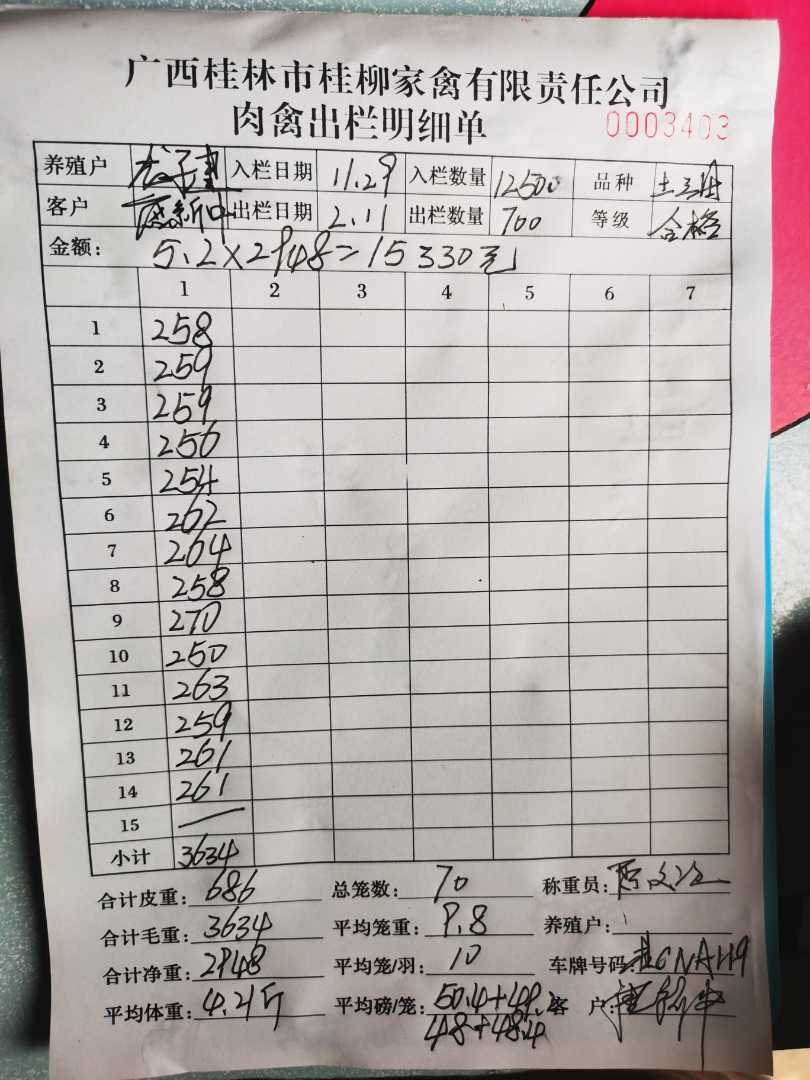 广西桂林市桂柳家禽有限责任公司
肉禽出栏明细单 0003403
养殖户 入栏日期 11.29 入栏数量 12500 品种
客户 出栏日期 2.11 出栏数量 700 等级 合格
金额： 5.2×2948=15330元
1 2 3 4 5 6 7
1 258
2 259
3 259
4 256
5 254
6 262
7 264
8 258
9 270
10 250
11 263
12 259
13 261
14 261
15 —
小计 3634
合计皮重：686 总笼数：70 称重员：
合计毛重：3634 平均笼重：9.8 养殖户：
合计净重：2948 平均笼/羽：10 车牌号码：桂CNA119
平均体重：4.21斤 平均磅/笼：50.4+49.2 客 户：
48+48.4